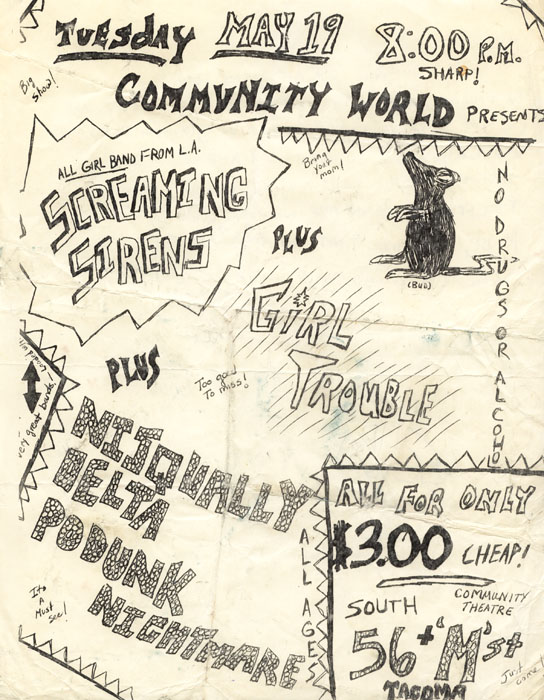 TUESDAY MAY 19 8:00 P.M.
SHARP!
Big
show!
COMMUNITY WORLD PRESENTS
ALL GIRL BAND FROM L.A.
SCREAMING
SIRENS
Bring
your
mom!
NO DRUGS OR ALCOHOL
PLUS
(BUB)
GIRL
TROUBLE
PLUS
Too good
To miss!
very great bands!
NISQUALLY
DELTA
PODUNK
NIGHTMARE
ALL AGES
Its
A
Must
see!
ALL FOR ONLY
$3.00 CHEAP!
COMMUNITY
THEATRE
SOUTH
56th 'M' St
TACOMA
Just
come!